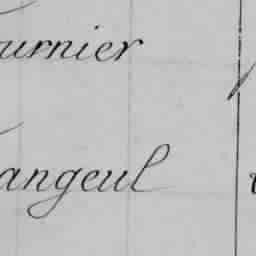 urnier
angeul